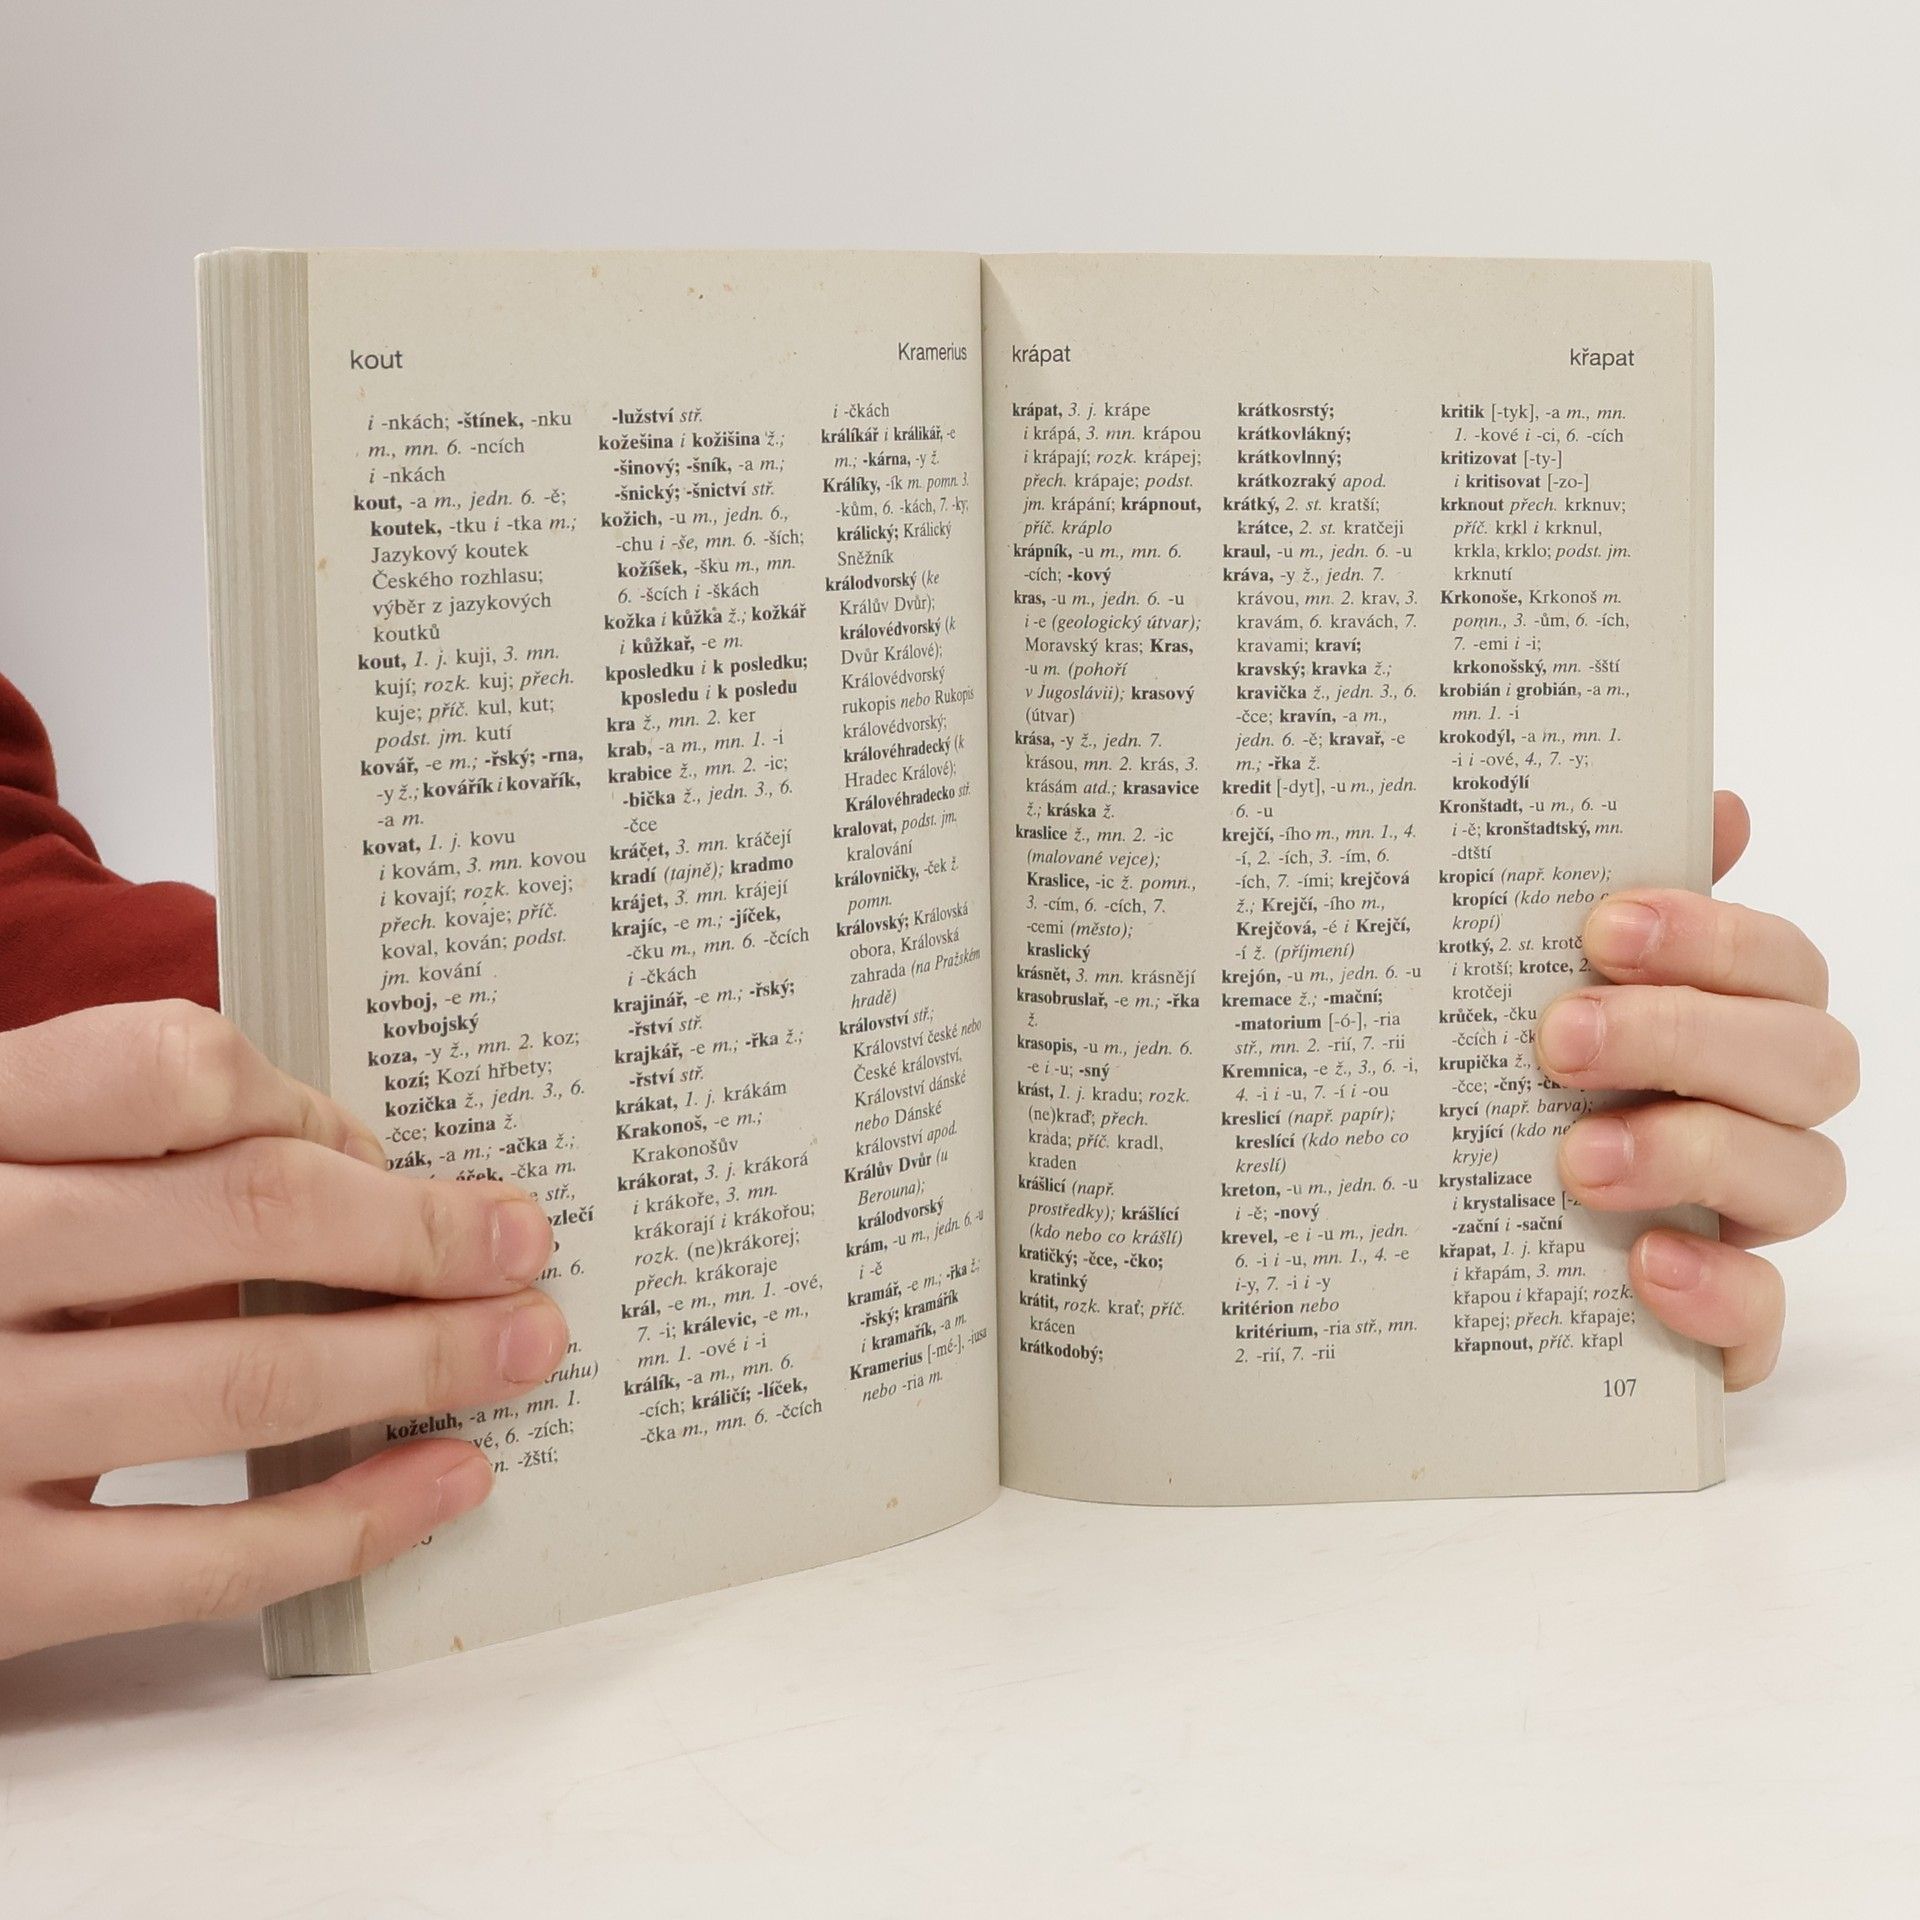 kout
Kramerius
i -nkách; -štínek, -nku
m., mn. 6. -ncích
i -nkách
kout, -a m., jedn. 6. -ě;
koutek, -tku i -tka m.;
Jazykový koutek
Českého rozhlasu;
výběr z jazykových
koutků
kout, 1. j. kuji, 3. mn.
kují; rozk. kuj; přech.
kuje; příč. kul, kut;
podst. jm. kutí
kovář, -e m.; -řský; -rna,
-y ž.; kovářík i kovařík,
-a m.
kovat, 1. j. kovu
i kovám, 3. mn. kovou
i kovají; rozk. kovej;
přech. kovaje; příč.
koval, kován; podst.
jm. kování
kovboj, -e m.;
kovbojský
koza, -y ž., mn. 2. koz;
kozí; Kozí hřbety;
kozička ž., jedn. 3., 6.
-čce; kozina ž.
-a m.; -ačka ž.;
-čka m.
stř.,
6.
koželuh, -a m., mn. 1.
6. -zích;
-žští;
-lužství stř.
kožešina i kožišina ž.;
-šinový; -šník, -a m.;
-šnický; -šnictví stř.
kožich, -u m., jedn. 6.,
-chu i -še, mn. 6. -ších;
kožíšek, -šku m., mn.
6. -šcích i -škách
kožka i kůžka ž.; kožkář
i kůžkař, -e m.
kposledku i k posledku;
kposledu i k posledu
kra ž., mn. 2. ker
krab, -a m., mn. 1. -i
krabice ž., mn. 2. -ic;
-bička ž., jedn. 3., 6.
-čce
kráčet, 3. mn. kráčejí
kradí (tajně); kradmo
krájet, 3. mn. krájejí
krajíc, -e m.; -jíček,
-čku m., mn. 6. -čcích
i -čkách
krajinář, -e m.; -řský;
-řství stř.
krajkář, -e m.; -řka ž.;
-řství stř.
krákat, 1. j. krákám
Krakonoš, -e m.;
Krakonošův
krákorat, 3. j. krákorá
i krákoře, 3. mn.
krákorají i krákořou;
rozk. (ne)krákorej;
přech. krákoraje
král, -e m., mn. 1. -ové,
7. -i; králevic, -e m.,
mn. 1. -ové i -i
králík, -a m., mn. 6.
-cích; králičí; -líček,
-čka m., mn. 6. -čcích
i -čkách
králíkář i králikář, -e
m.; -kárna, -y ž.
Králíky, -ík m. pomn. 3.
-kům, 6. -kách, 7. -ky;
králický; Králický
Sněžník
králodvorský (ke
Králův Dvůr);
královédvorský (k
Dvůr Králové);
Královédvorský
rukopis nebo Rukopis
královédvorský;
královéhradecký (k
Hradec Králové);
Královéhradecko stř.
kralovat, podst. jm.
kralování
královničky, -ček ž.
pomn.
královský; Královská
obora, Královská
zahrada (na Pražském
hradě)
království stř.;
Království české nebo
České království,
Království dánské
nebo Dánské
království apod.
Králův Dvůr (u
Berouna);
králodvorský
krám, -u m., jedn. 6. -u
i -ě
kramář, -e m.; -řka ž.;
-řský; kramářík
i kramařík, -a m.
Kramerius [-mé-], -iusa
nebo -ria m.
krápat
křapat
krápat, 3. j. krápe
i krápá, 3. mn. krápou
i krápají; rozk. krápej;
přech. krápaje; podst.
jm. krápání; krápnout,
příč. kráplo
krápník, -u m., mn. 6.
-cích; -kový
kras, -u m., jedn. 6. -u
i -e (geologický útvar);
Moravský kras; Kras,
-u m. (pohoří
v Jugoslávii); krasový
(útvar)
krása, -y ž., jedn. 7.
krásou, mn. 2. krás, 3.
krásám atd.; krasavice
ž.; kráska ž.
kraslice ž., mn. 2. -ic
(malované vejce);
Kraslice, -ic ž. pomn.,
3. -cím, 6. -cích, 7.
-cemi (město);
kraslický
krásnět, 3. mn. krásnějí
krasobruslař, -e m.; -řka
ž.
krasopis, -u m., jedn. 6.
-e i -u; -sný
krást, 1. j. kradu; rozk.
(ne)kraď; přech.
krada; příč. kradl,
kraden
krášlicí (např.
prostředky); krášlící
(kdo nebo co krášlí)
kratičký; -čce, -čko;
kratinký
krátit, rozk. krať; příč.
krácen
krátkodobý;
krátkosrstý;
krátkovlákný;
krátkovlnný;
krátkozraký apod.
krátký, 2. st. kratší;
krátce, 2. st. kratčeji
kraul, -u m., jedn. 6. -u
kráva, -y ž., jedn. 7.
krávou, mn. 2. krav, 3.
kravám, 6. kravách, 7.
kravami; kraví;
kravský; kravka ž.;
kravička ž., jedn. 3., 6.
-čce; kravín, -a m.,
jedn. 6. -ě; kravař, -e
m.; -řka ž.
kredit [-dyt], -u m., jedn.
6. -u
krejčí, -ího m., mn. 1., 4.
-í, 2. -ích, 3. -ím, 6.
-ích, 7. -ími; krejčová
ž.; Krejčí, -ího m.,
Krejčová, -é i Krejčí,
-í ž. (příjmení)
krejón, -u m., jedn. 6. -u
kremace ž.; -mační;
-matorium [-ó-], -ria
stř., mn. 2. -rií, 7. -rii
Kremnica, -e ž., 3., 6. -i,
4. -i i -u, 7. -í i -ou
kreslicí (např. papír);
kreslící (kdo nebo co
kreslí)
kreton, -u m., jedn. 6. -u
i -ě; -nový
krevel, -e i -u m., jedn.
6. -i i -u, mn. 1., 4. -e
i-y, 7. -i i -y
kritérion nebo
kritérium, -ria stř., mn.
2. -rií, 7. -rii
kritik [-tyk], -a m., mn.
1. -kové i -ci, 6. -cích
kritizovat [-ty-]
i kritisovat [-zo-]
krknout přech. krknuv;
příč. krkl i krknul,
krkla, krklo; podst. jm.
krknutí
Krkonoše, Krkonoš m.
pomn., 3. -ům, 6. -ích,
7. -emi i -i;
krkonošský, mn. -šští
krobián i grobián, -a m.,
mn. 1. -i
krokodýl, -a m., mn. 1.
-i i -ové, 4., 7. -y;
krokodýlí
Kronštadt, -u m., 6. -u
i -ě; kronštadtský, mn.
-dtští
kropicí (např. konev);
kropící (kdo nebo
kropí)
krotký, 2. st.
i krotší; krotce, 2.
krotčeji
krůček, -čku
-čcích i
krupička ž.,
-čce; -čný;
krycí (např. barva);
kryjící (kdo
kryje)
krystalizace
i krystalisace
-zační i -sační
křapat, 1. j. křapu
i křapám, 3. mn.
křapou i křapají; rozk.
křapej; přech. křapaje;
křapnout, příč. křapl
107